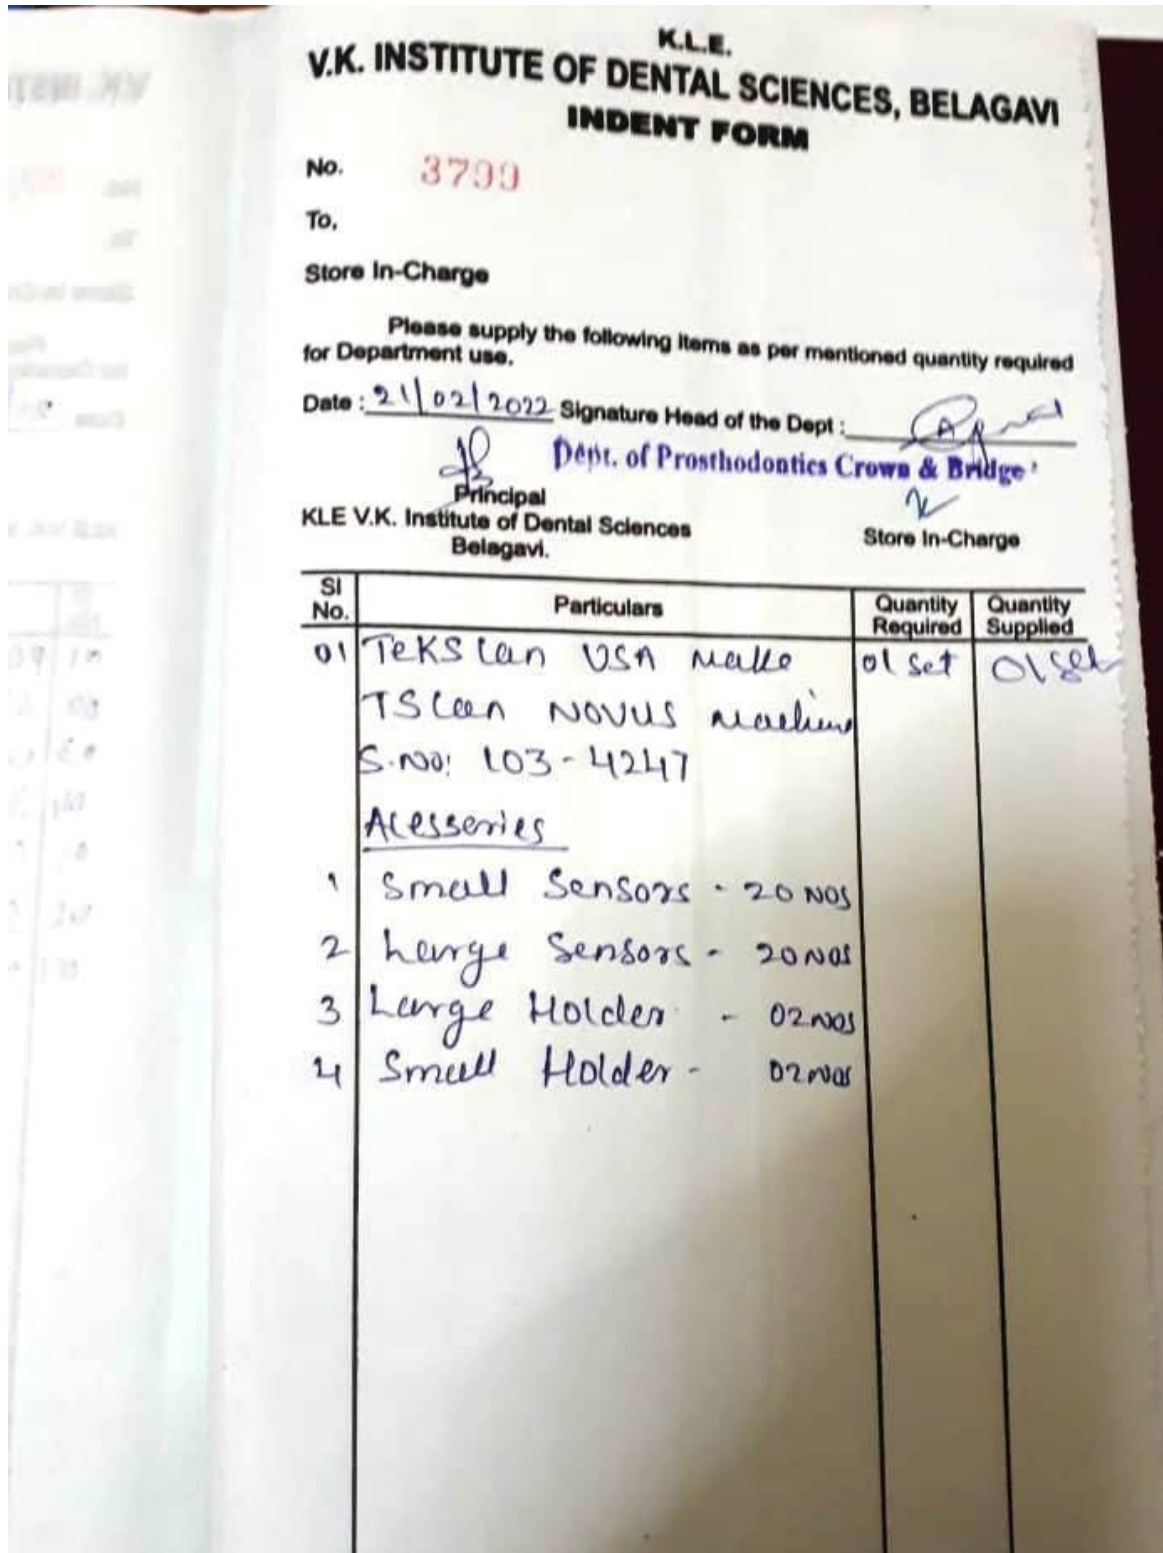 K.L.E.
V.K. INSTITUTE OF DENTAL SCIENCES, BELAGAVI
INDENT FORM
No. 3799
To,
Store In-Charge
Please supply the following items as per mentioned quantity required
for Department use.
Date : 21/02/2022 Signature Head of the Dept :
Dept. of Prosthodontics Crown & Bridge
Principal
KLE V.K. Institute of Dental Sciences
Belagavi.
Store In-Charge
Sl No. Particulars Quantity Required Quantity Supplied
01 TeKSCan USA Make 01 Set 01 Set
TSCan NOVUS Machine
S.No: 103-4247
Acesseries
1 Small Sensors - 20 NOS
2 Large Sensors - 20 NOS
3 Large Holder - 02 NOS
4 Small Holder - 02 NOS